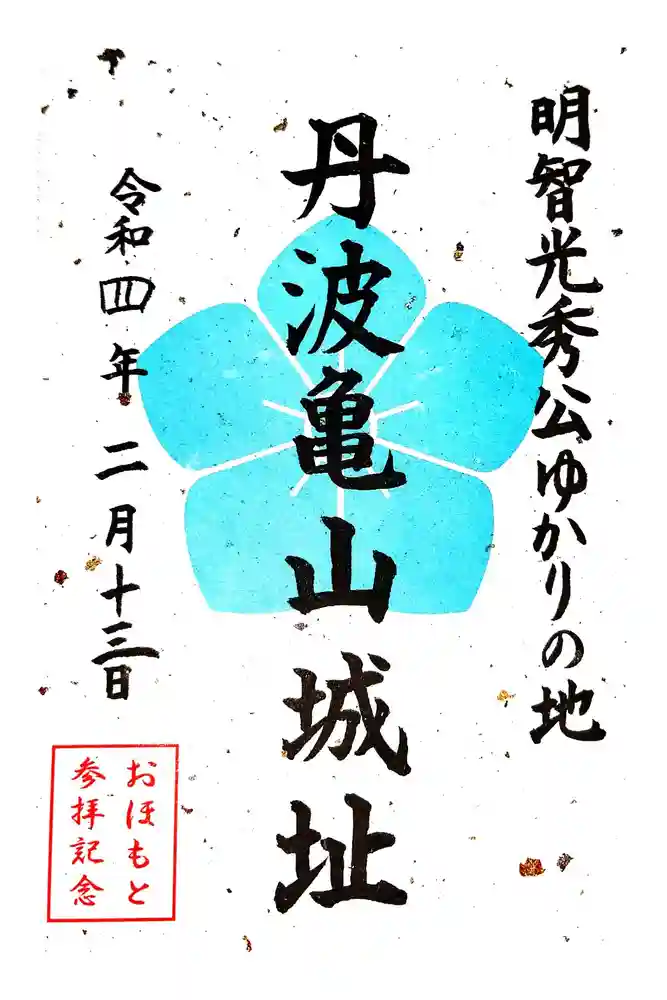 明智光秀公ゆかりの地
丹波亀山城址
令和四年二月十三日
おほもと
参拝記念